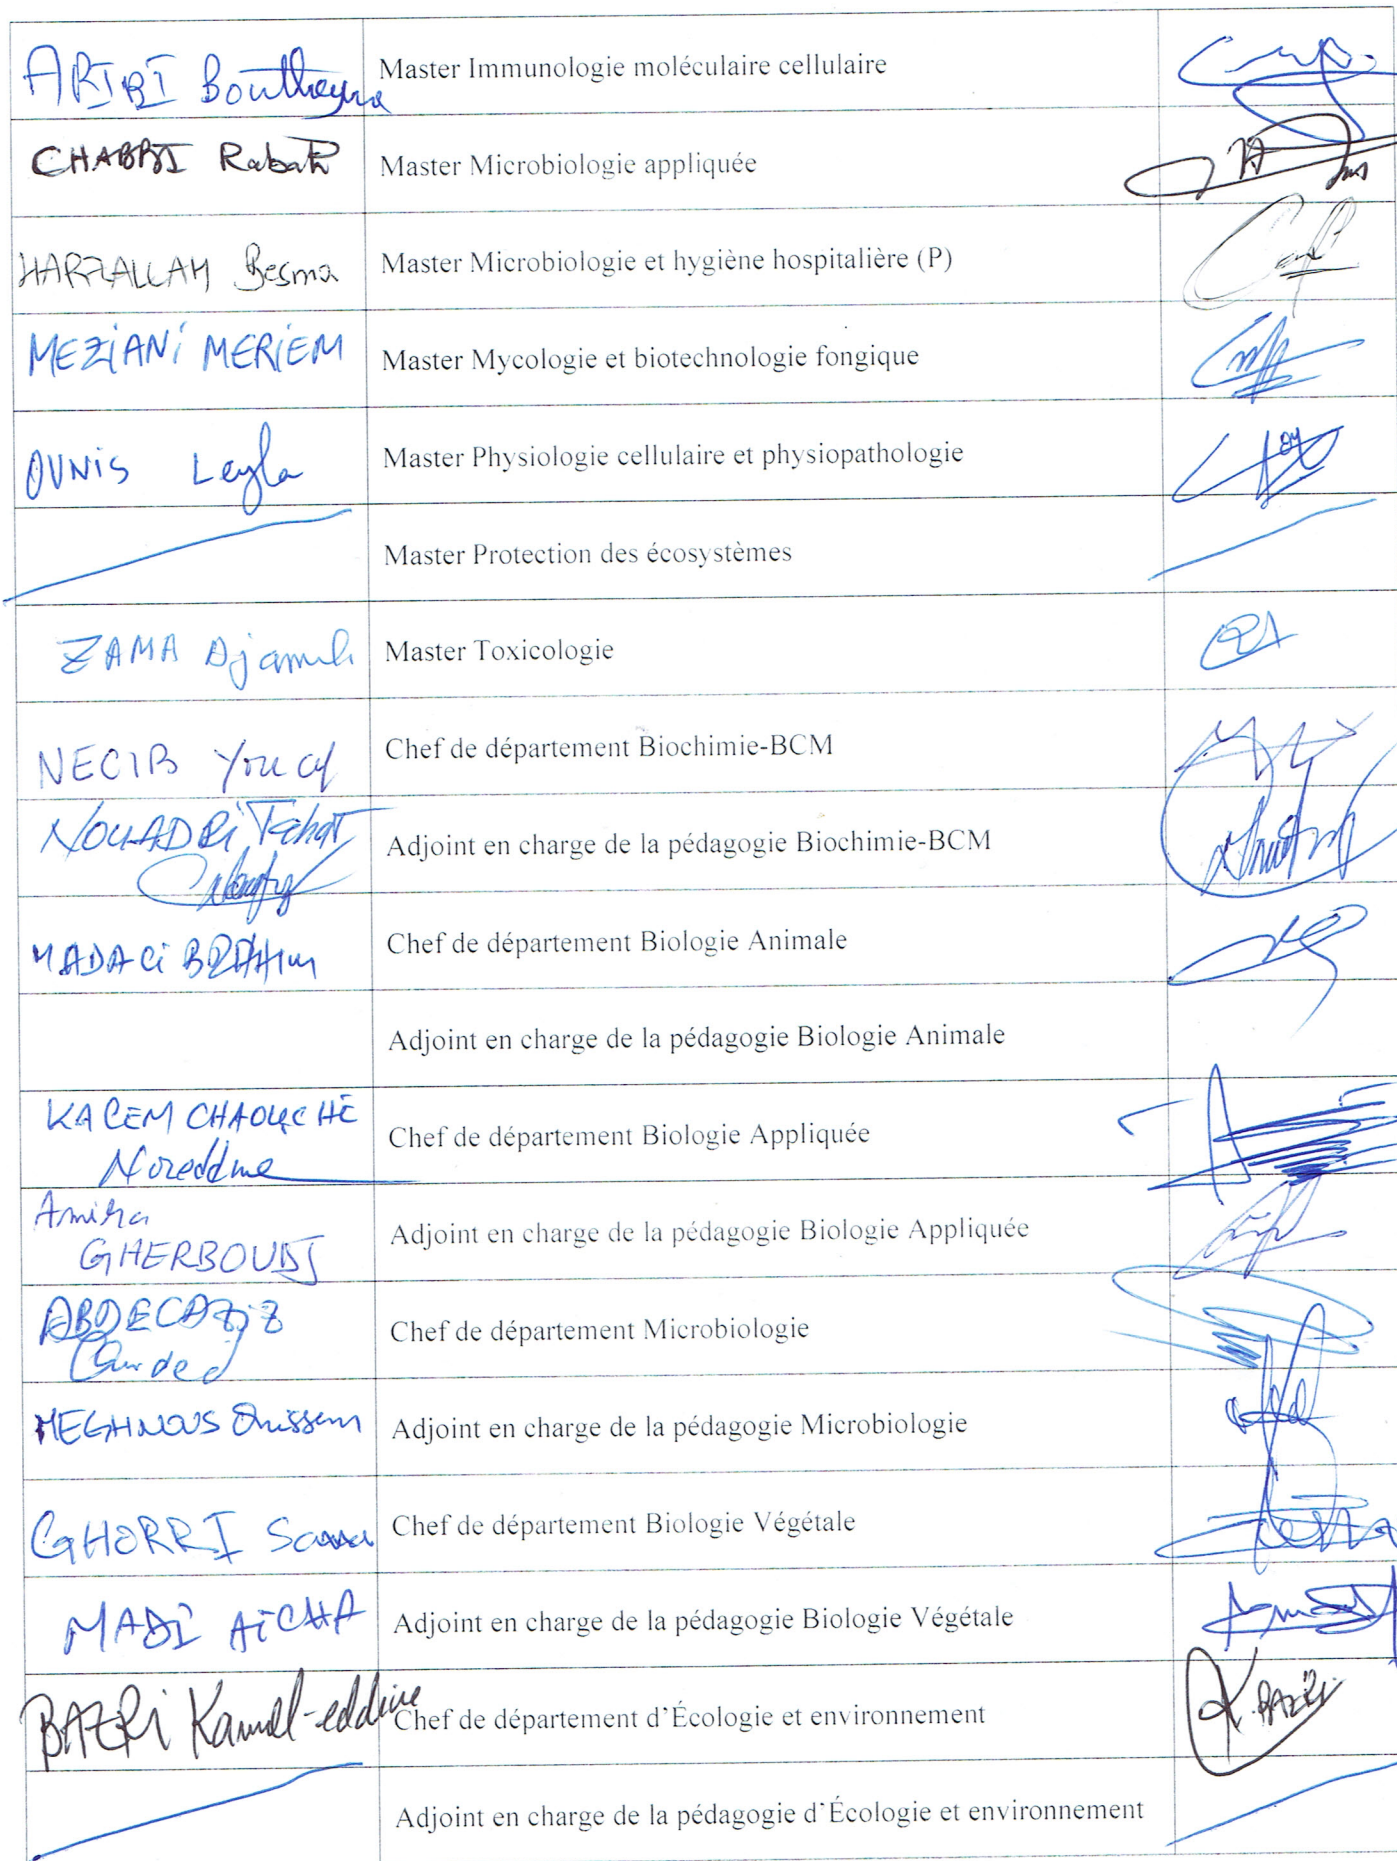 ARIBI Boutheyna
Master Immunologie moléculaire cellulaire
CHABBI Rabah
Master Microbiologie appliquée
HARZALLAH Besma
Master Microbiologie et hygiène hospitalière (P)
MEZiANi MERiEM
Master Mycologie et biotechnologie fongique
OUNIS Leyla
Master Physiologie cellulaire et physiopathologie
Master Protection des écosystèmes
ZAMA Djamila
Master Toxicologie
NECIB Youcef
Chef de département Biochimie-BCM
NOUADRi Tahar
Adjoint en charge de la pédagogie Biochimie-BCM
MADACi BRAHIM
Chef de département Biologie Animale
Adjoint en charge de la pédagogie Biologie Animale
KACEM CHAOUCHE
Noreddine
Chef de département Biologie Appliquée
Amira
GHERBOUDJ
Adjoint en charge de la pédagogie Biologie Appliquée
ABDELAZiZ
Chef de département Microbiologie
MEGHNOUS Ouissem
Adjoint en charge de la pédagogie Microbiologie
GHORRI Sana
Chef de département Biologie Végétale
MADI AiCHA
Adjoint en charge de la pédagogie Biologie Végétale
BAZRi Kamel-eddine
Chef de département d'Écologie et environnement
K. BAZRi
Adjoint en charge de la pédagogie d'Écologie et environnement